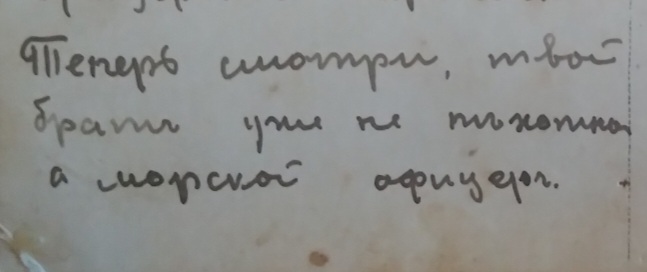 Теперь смотри, твой
братъ уже не пѣхотной
а морской офицеръ.